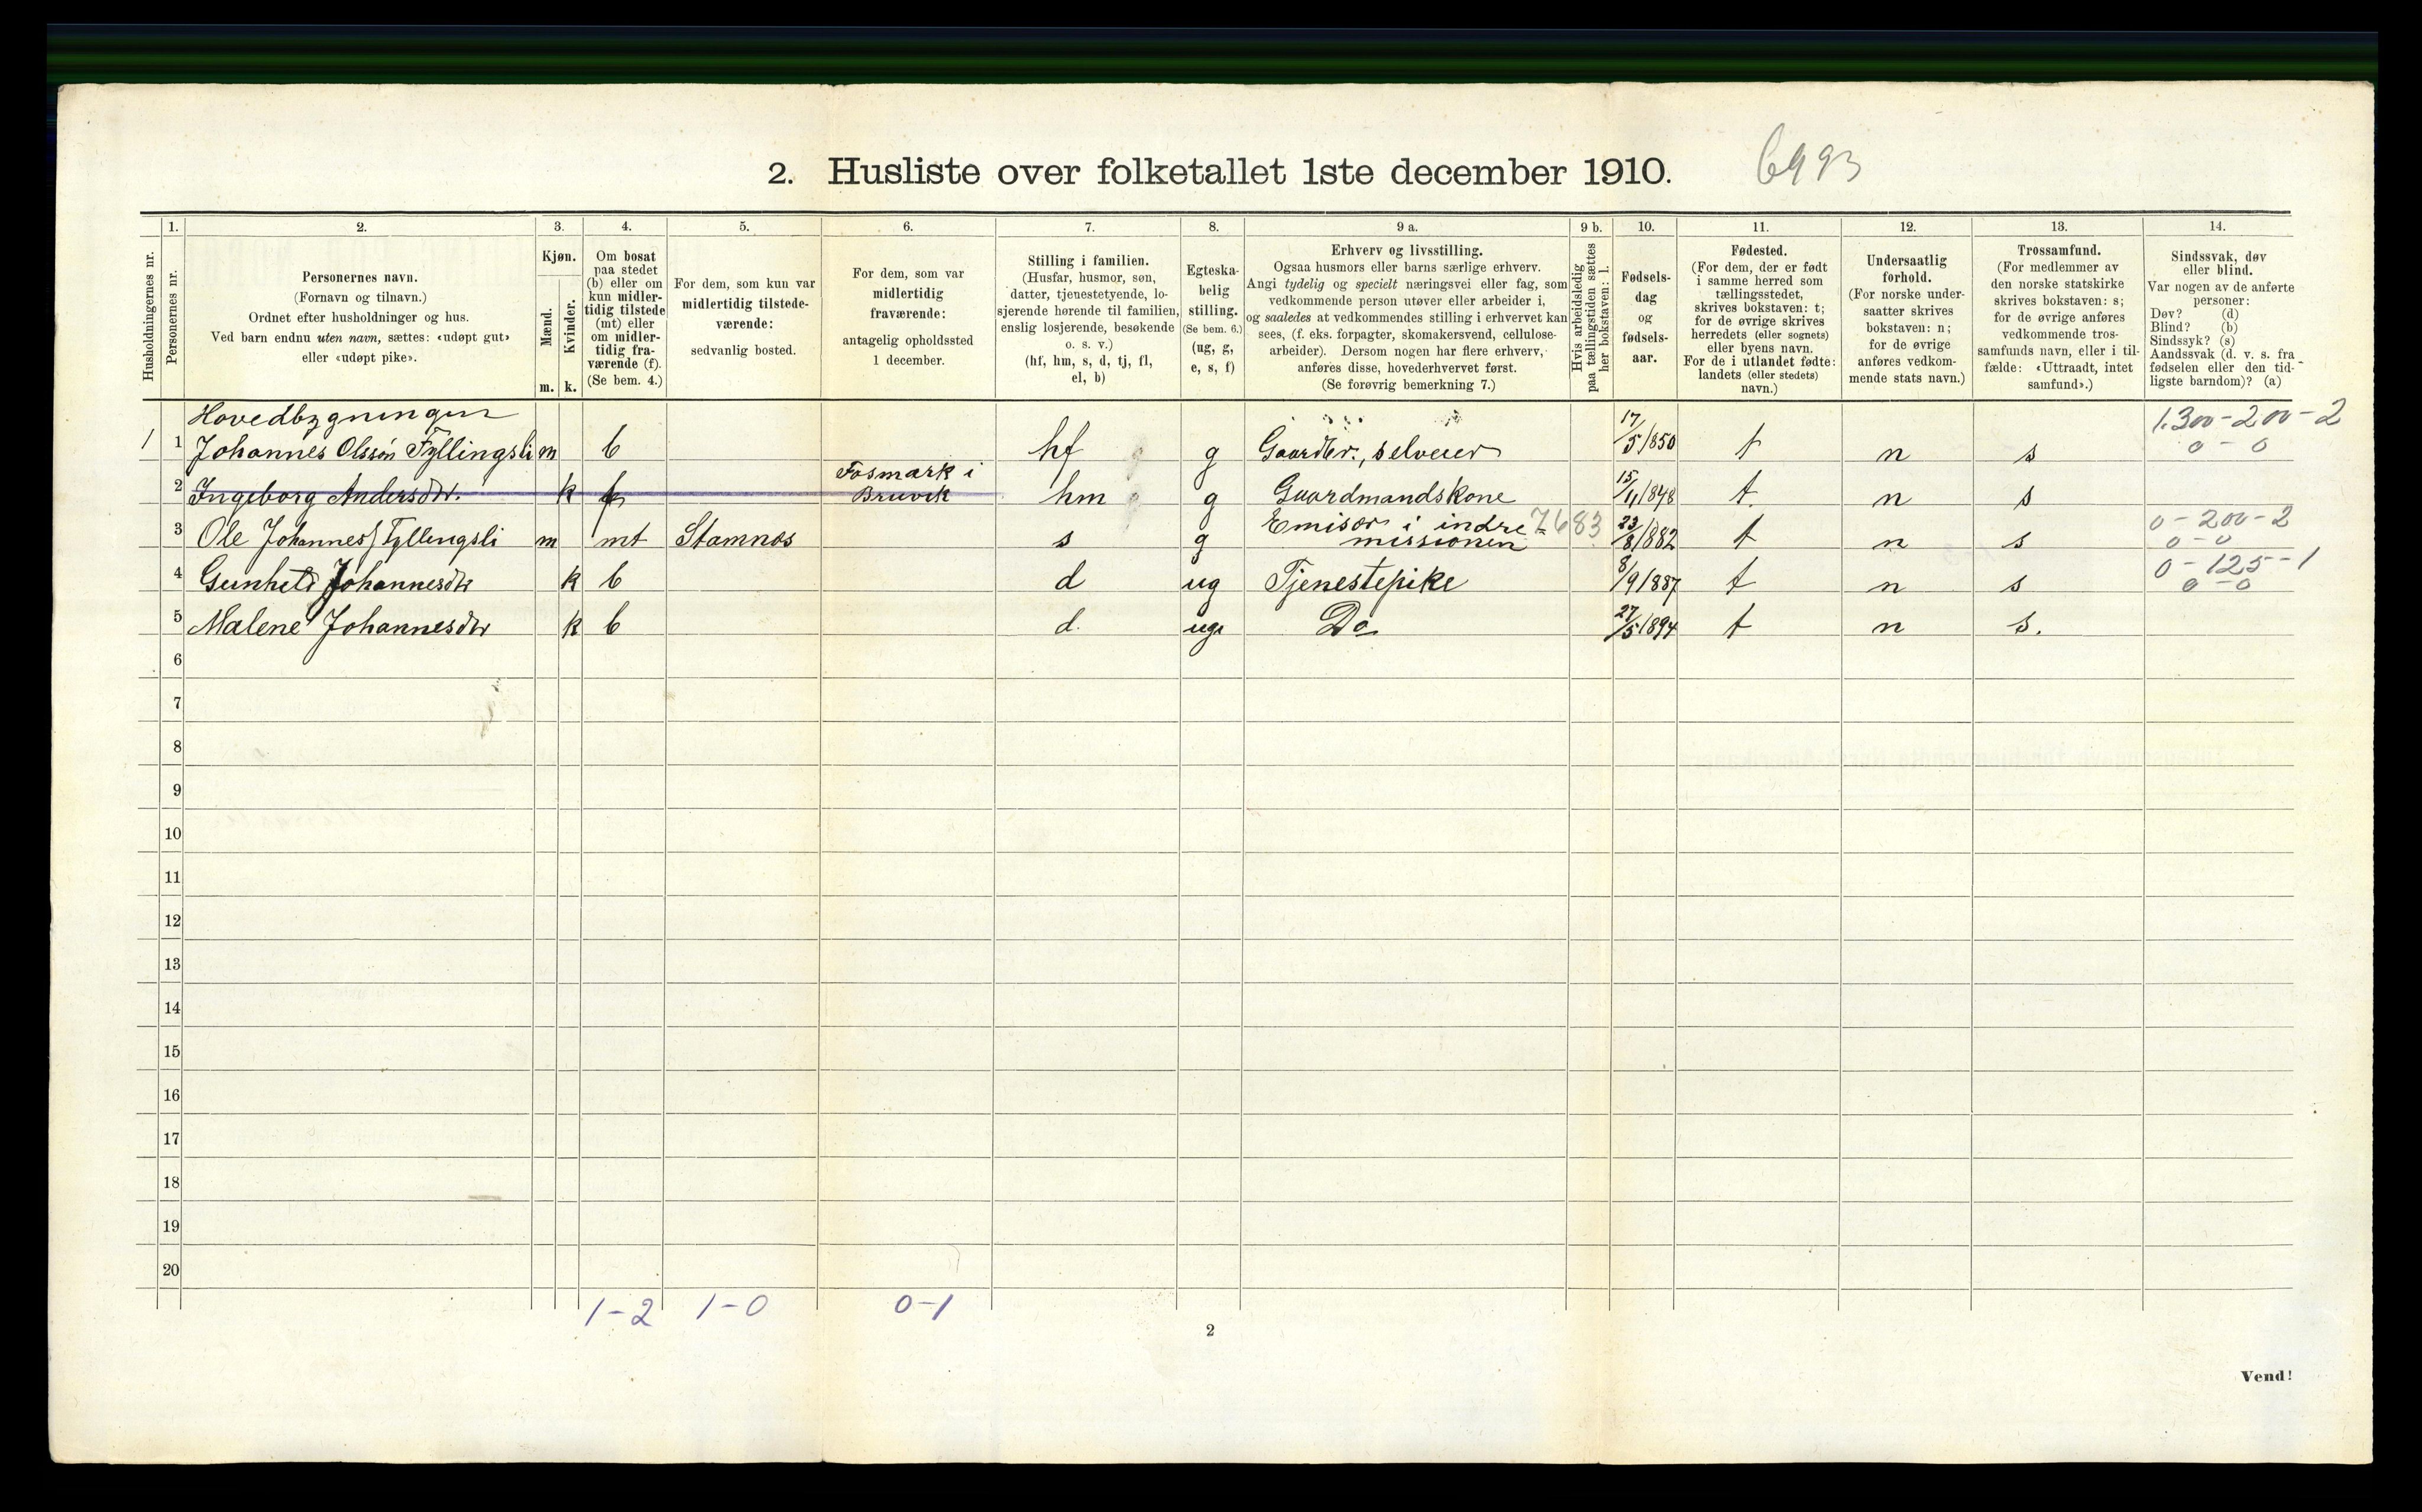 2. Husliste over folketallet 1ste december 1910. 6993
Husholdningernes nr.
1.
Personernes nr.
2.
Personernes navn.
(Fornavn og tilnavn.)
Ordnet efter husholdninger og hus.
Ved barn endnu uten navn, sættes: «udøpt gut»
eller «udøpt pike».
3.
Kjøn.
Mænd.
Kvinder.
m. k.
4.
Om bosat
paa stedet
(b) eller om
kun midler-
tidig tilstede
(mt) eller
om midler-
tidig fra-
værende (f).
(Se bem. 4.)
5.
For dem, som kun var
midlertidig tilstede-
værende:
sedvanlig bosted.
6.
For dem, som var
midlertidig
fraværende:
antagelig opholdssted
1 december.
7.
Stilling i familien.
(Husfar, husmor, søn,
datter, tjenestetyende, lo-
sjerende hørende til familien,
enslig losjerende, besøkende
o. s. v.)
(hf, hm, s, d, tj, fl,
el, b)
8.
Egteska-
belig
stilling.
(Se bem. 6.)
(ug, g,
e, s, f)
9 a.
Erhverv og livsstilling.
Ogsaa husmors eller barns særlige erhverv.
Angi tydelig og specielt næringsvei eller fag, som
vedkommende person utøver eller arbeider i,
og saaledes at vedkommendes stilling i erhvervet kan
sees, (f. eks. forpagter, skomakersvend, cellulose-
arbeider). Dersom nogen har flere erhverv,
anføres disse, hovederhvervet først.
(Se forøvrig bemerkning 7.)
9 b.
Hvis arbeidsledig
paa tællingstiden sættes
her bokstaven: l.
10.
Fødsels-
dag
og
fødsels-
aar.
11.
Fødested.
(For dem, der er født
i samme herred som
tællingsstedet,
skrives bokstaven: t;
for de øvrige skrives
herredets (eller sognets)
eller byens navn.
For de i utlandet fødte:
landets (eller stedets)
navn.)
12.
Undersaatlig
forhold.
(For norske under-
saatter skrives
bokstaven: n;
for de øvrige
anføres vedkom-
mende stats navn.)
13.
Trossamfund.
(For medlemmer av
den norske statskirke
skrives bokstaven: s;
for de øvrige anføres
vedkommende tros-
samfunds navn, eller i til-
fælde: «Uttraadt, intet
samfund».)
14.
Sindssvak, døv
eller blind.
Var nogen av de anførte
personer:
Døv? (d)
Blind? (b)
Sindssyk? (s)
Aandssvak (d. v. s. fra
fødselen eller den tid-
ligste barndom)? (a)
Hovedbygningen 1.300-200-2
1 1 Johannes Olsson Fyllingsli m b hf g Gaardbr., selveier 17/5 1850 t n s 0-0
2 Ingeborg Andersdtr. k f Fosmark i Bruvik hm g Gaardmandskone 15/11 1848 t. n s
3 Ole Johannes Fyllingsli m mt Stamnes s g Emisær i indre missionen 7683 23/8 1882 t n s 0-200-2 0-0
4 Gunhild Johannesdtr k b d ug Tjenestepike 8/9 1887 t n s 0-125-1 0-0
5 Malene Johannesdtr k b d. ug Do 27/5 1894 t n s.
6
7
8
9
10
11
12
13
14
15
16
17
18
19
20
1-2 1-0 0-1
2
Vend!